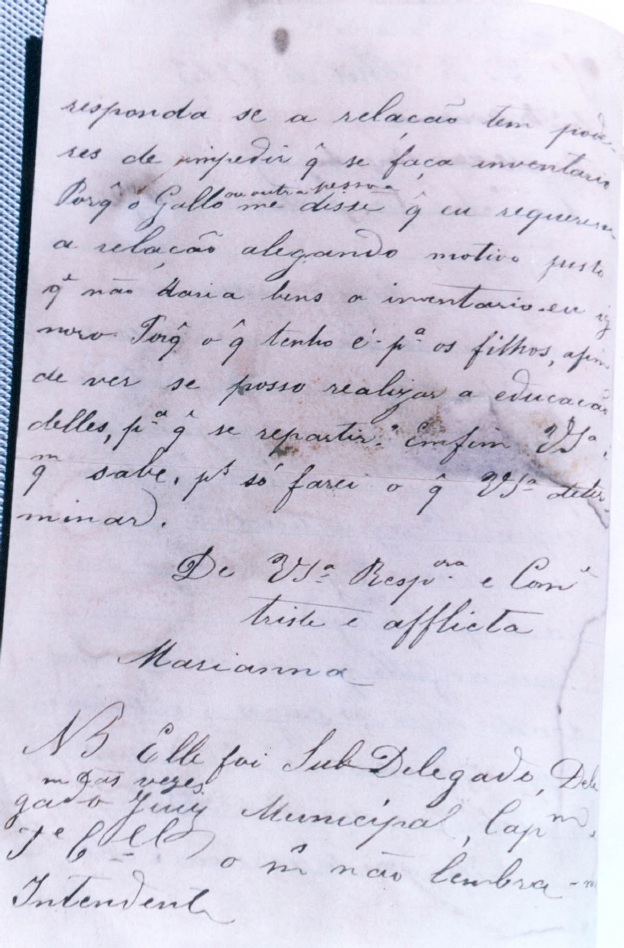 responda se a relação tem pode-
res de impedir q̂ se faça inventario
Porq̂ o Gallo ou outra pessoa me disse q̂ eu requeresse
a relação alegando motivo justo
q̂ não havia bens a inventario. eu ig
noro Porq̂ o q̂ tenho é pª os filhos, afim
de ver se posso realizar a educacão
delles, pª q̂ se repartir. Emfim VSª,
qᵐ sabe, pˢ só farei o q̂ VSª deter-
minar.
De VSª Respᵒʳᵃ e Comᵉ
triste e afflicta
Marianna
NB Elle foi Sub Delegado, Dele
gado
Juiz Municipal, Capᵐ,
o m̂ não lembra-m
Intendente